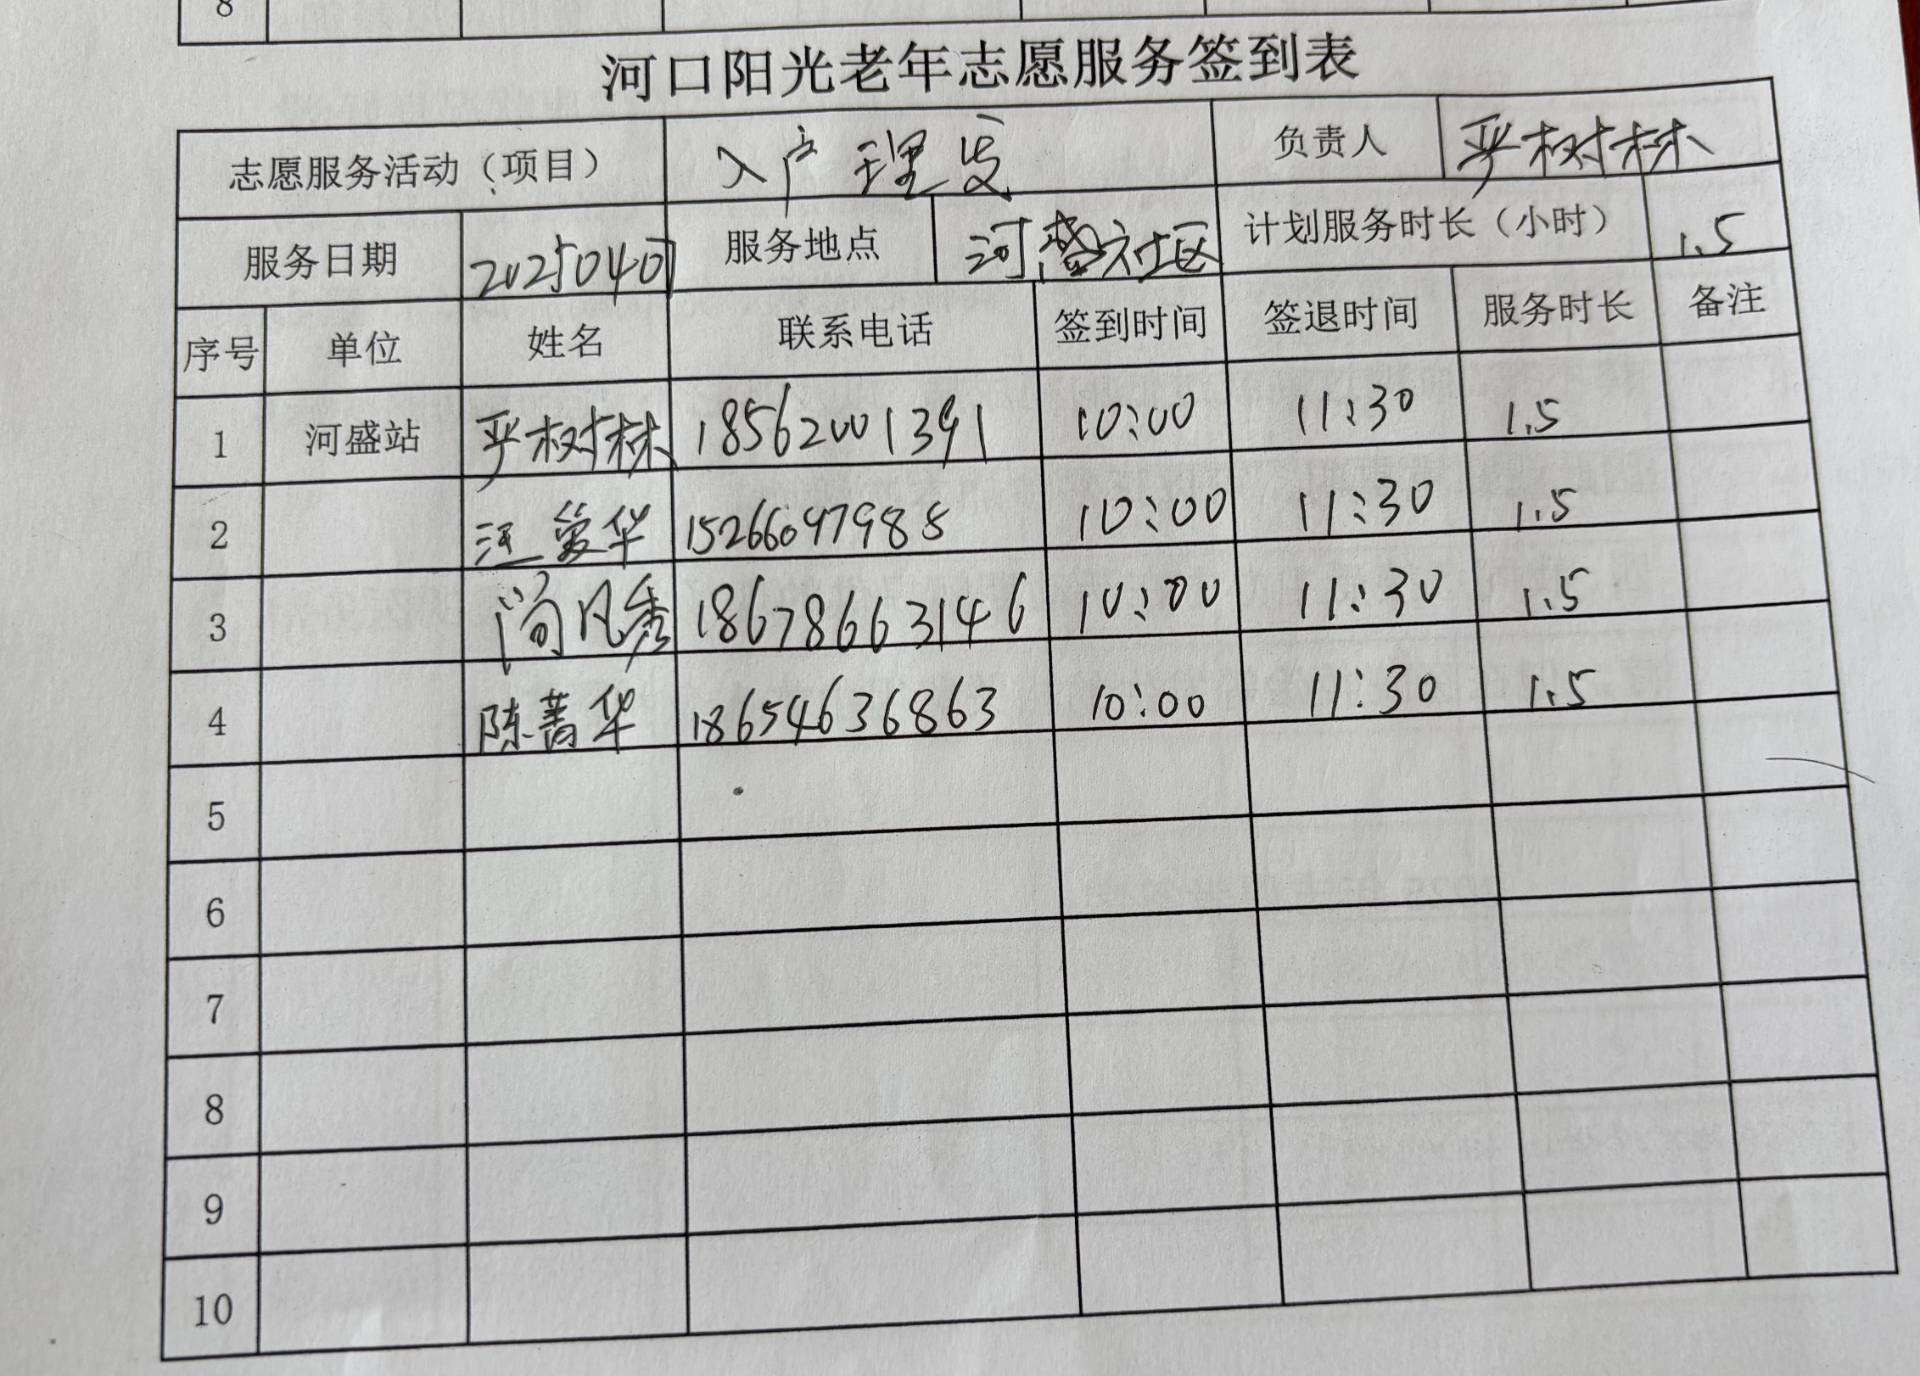 8
河口阳光老年志愿服务签到表
志愿服务活动（项目） 入户理发 负责人 严树林
服务日期 20250407 服务地点 河盛社区 计划服务时长（小时） 1.5
序号 单位 姓名 联系电话 签到时间 签退时间 服务时长 备注
1 河盛站 严树林 18562001391 10:00 11:30 1.5
2 汪爱华 15266097988 10:00 11:30 1.5
3 尚凡秀 18678663146 10:00 11:30 1.5
4 陈菁华 18654636863 10:00 11:30 1.5
5
6
7
8
9
10